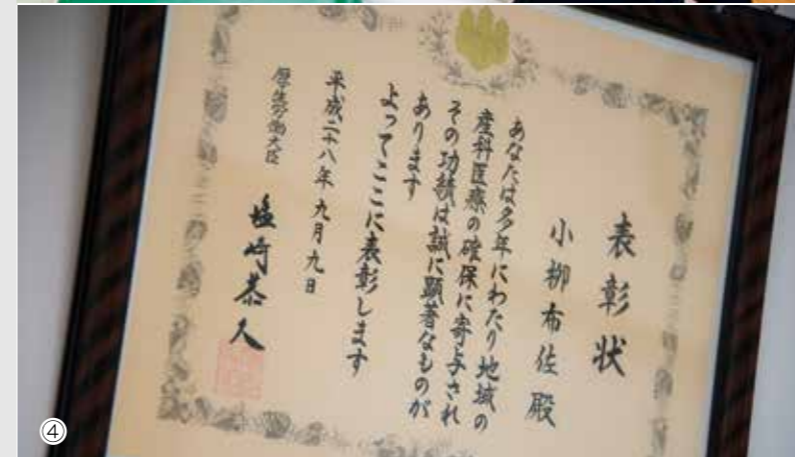 表彰状
小柳布佐殿
あなたは多年にわたり地域の
産科医療の確保に寄与され
その功績は誠に顕著なものが
あります
よってここに表彰します
平成二十八年九月九日
厚生労働大臣 塩崎恭久
④